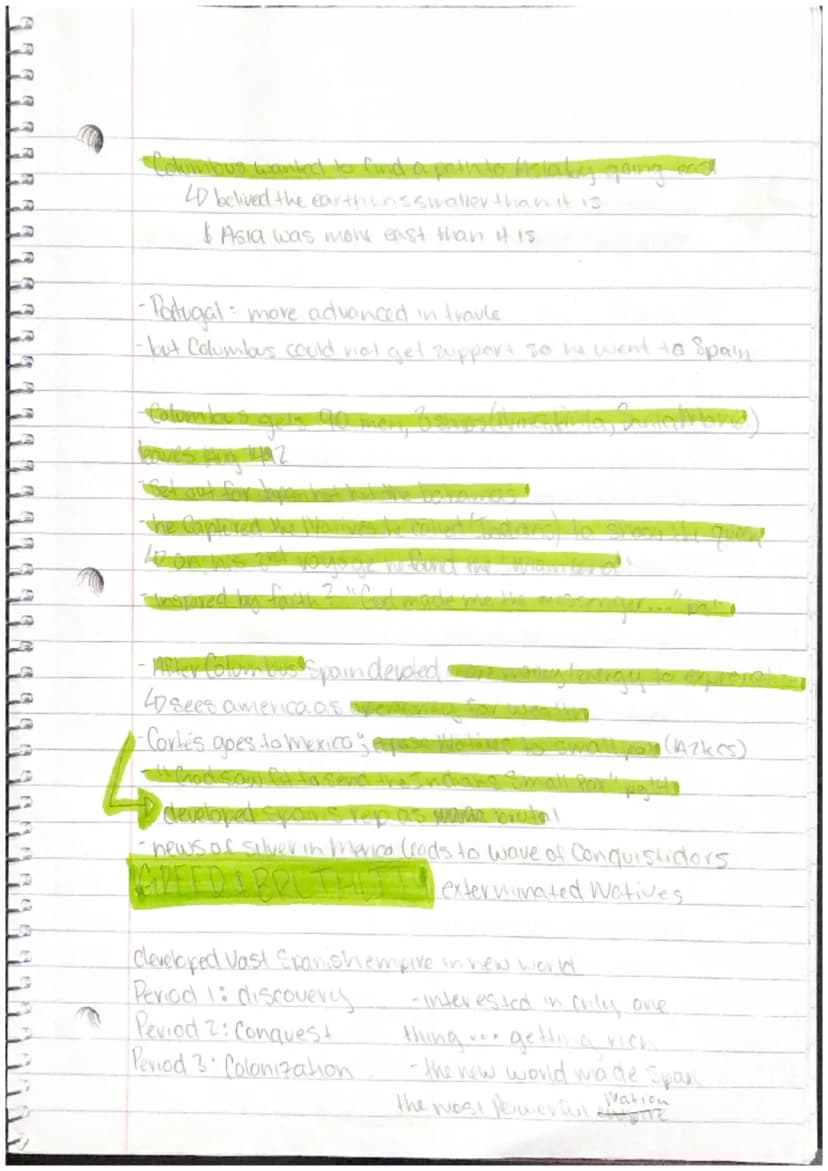 - Columbus wanted to find a path to Asia by going east
↳ belived the earth was smaller than it is
& Asia was more east than it is
- Portugal = more advanced in travle
- but Columbus could not get support so he went to Spain
- Columbus gets 90 men, 3 (Nina, Pinta, Santa Maria)
leaves Aug 1492
- Set out for Japan but hit the bahamas
- he Captured the Natives he called (Indians) to show the queen
↳ on his voyage he found the "
- inspired by faith? "God made me the messenger..." pg
- After Columbus Spain devoted money/energy to
↳ sees america as for wealth
- Cortés goes to Mexico; Natives to small pox (Aztecs)
- "God saw fit to send the Indians Small Pox" pg
developed Spains rep as brutal
- news of silver in Mexico leads to wave of Conquistidors
GREED & BRUTALITY exterminated Natives
developed Vast Spanish empire in new world
Period 1: discovery - interested in only one
Period 2: Conquest thing... getting rich
Period 3: Colonization - the new world made Spain
the most Powerful Nation